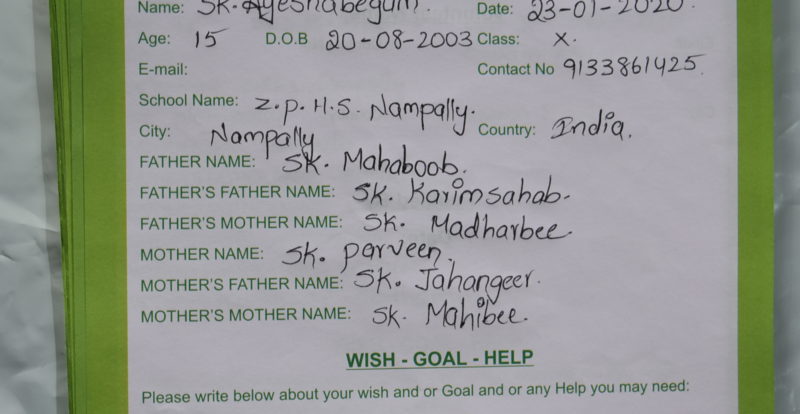 Name: SK. Ayeshabegum. Date: 23-01-2020.
Age: 15 D.O.B 20-08-2003 Class: X.
E-mail: Contact No 9133861425.
School Name: Z.P.H.S. Nampally.
City: Nampally Country: India.
FATHER NAME: SK. Mahaboob.
FATHER'S FATHER NAME: SK. Karimsahab.
FATHER'S MOTHER NAME: SK. Madharbee.
MOTHER NAME: SK. parveen.
MOTHER'S FATHER NAME: SK. Jahangeer.
MOTHER'S MOTHER NAME: SK. Mahibee.
WISH - GOAL - HELP
Please write below about your wish and or Goal and or any Help you may need: